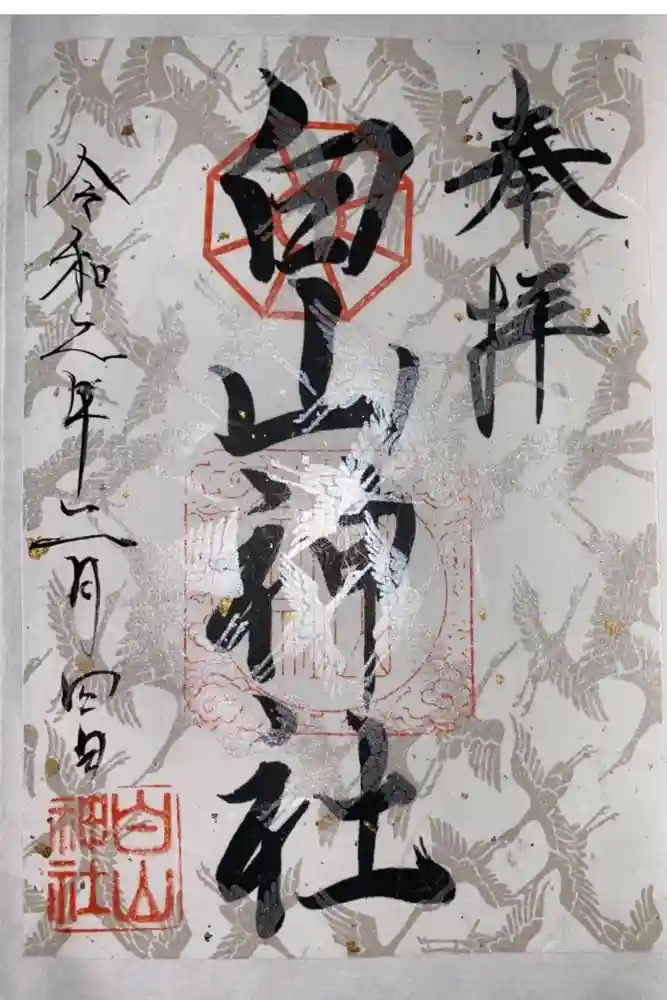 奉拝
白山神社
令和 年 月四日
白山
神社